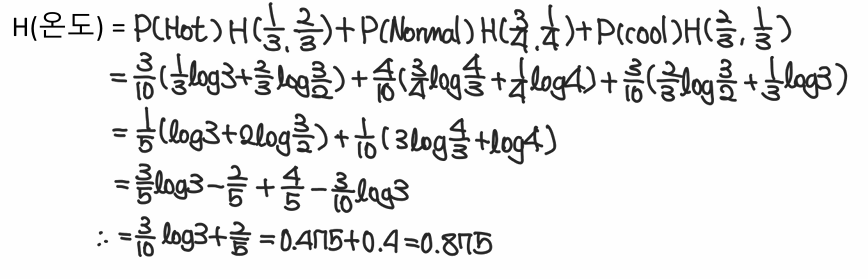 H(온도) = P(Hot) H(1/3, 2/3) + P(Normal) H(3/4, 1/4) + P(cool) H(2/3, 1/3)
= 3/10 (1/3 log3 + 2/3 log 3/2) + 4/10 (3/4 log 4/3 + 1/4 log4) + 3/10 (2/3 log 3/2 + 1/3 log3)
= 1/5 (log3 + 2log 3/2) + 1/10 (3log 4/3 + log4)
= 3/5 log3 - 2/5 + 4/5 - 3/10 log3
∴ = 3/10 log3 + 2/5 = 0.475 + 0.4 = 0.875